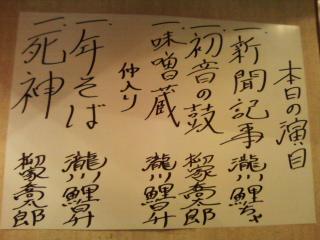 本日の演目
一、新聞記事 瀧川鯉ちゃ
一、初音の鼓 柳家喬太郎
一、味噌蔵 瀧川鯉昇
仲入り
一、年そば 瀧川鯉昇
一、死神 柳家喬太郎